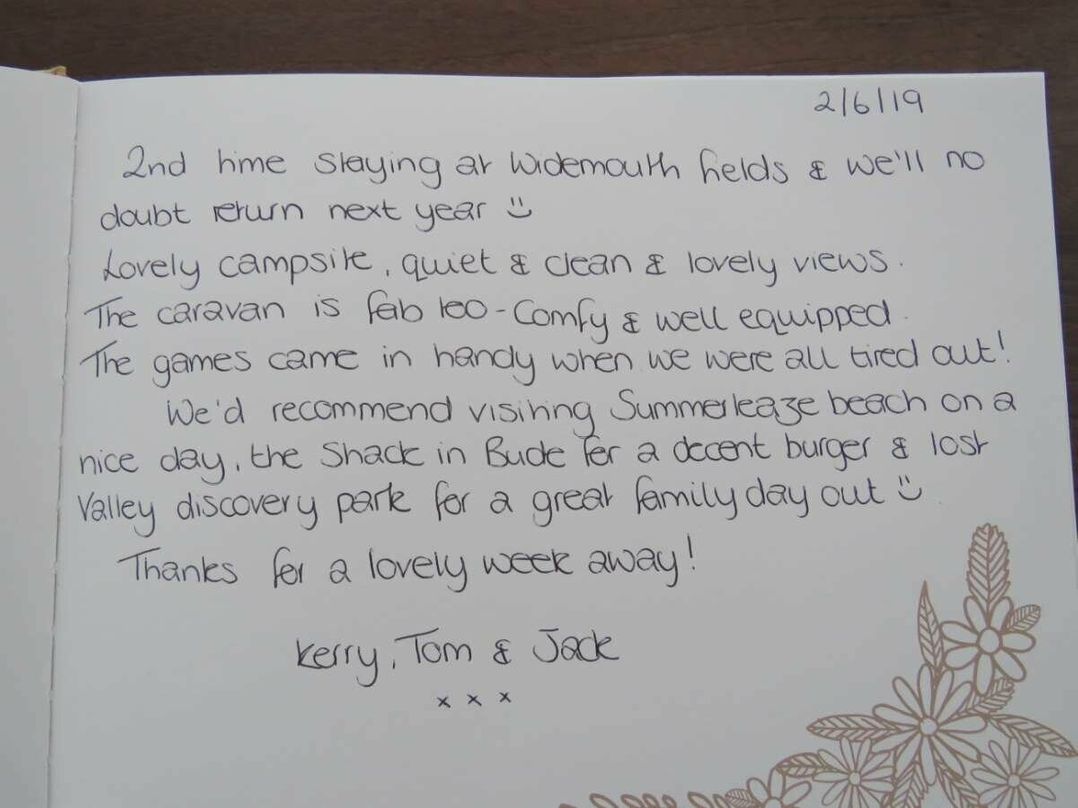 2/6/19
2nd time staying at Widemouth fields & we'll no
doubt return next year :)
Lovely campsite, quiet & clean & lovely views.
The caravan is fab too - Comfy & well equipped.
The games came in handy when we were all tired out!
We'd recommend visiting Summerleaze beach on a
nice day, the Shack in Bude for a decent burger & lost
Valley discovery park for a great family day out :)
Thanks for a lovely week away!
Kerry, Tom & Jack
x x x